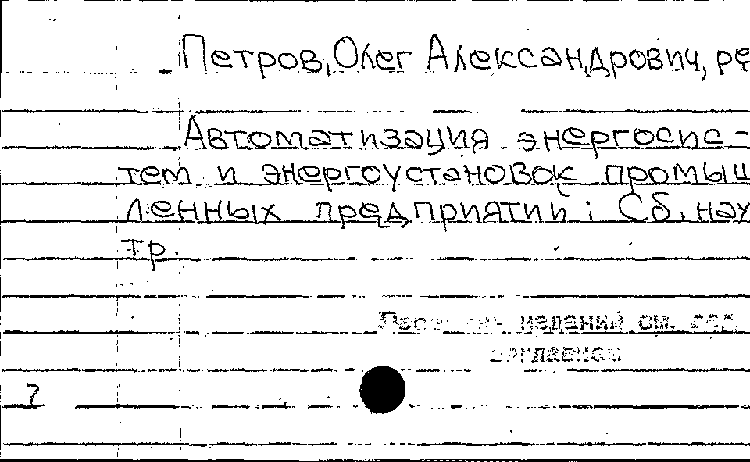 Петров, Олег Александрович, ре
Автоматизация энергосис-
тем и энергоустановок промыш
ленных предприятий : Сб. нау
тр.
изданий см.
заглавием
7